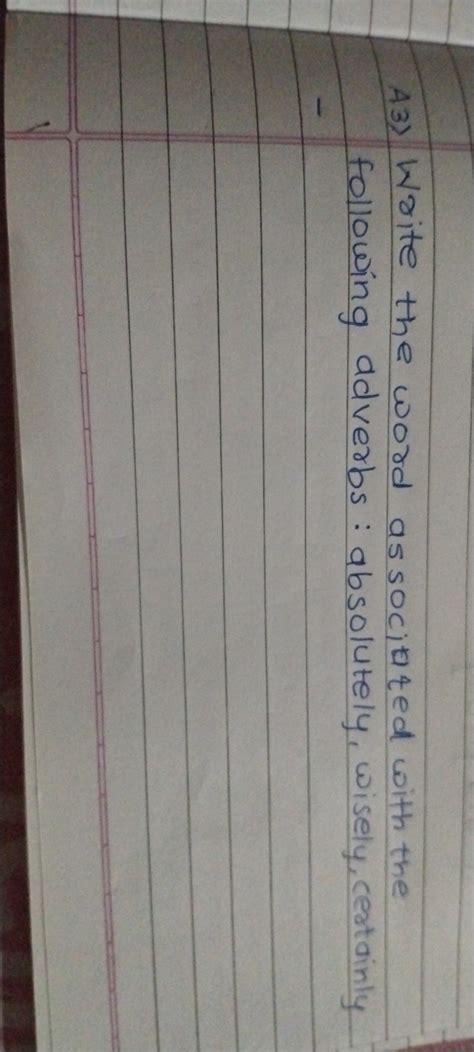 A3) Write the word associated with the
following adverbs : absolutely, wisely, certainly
-